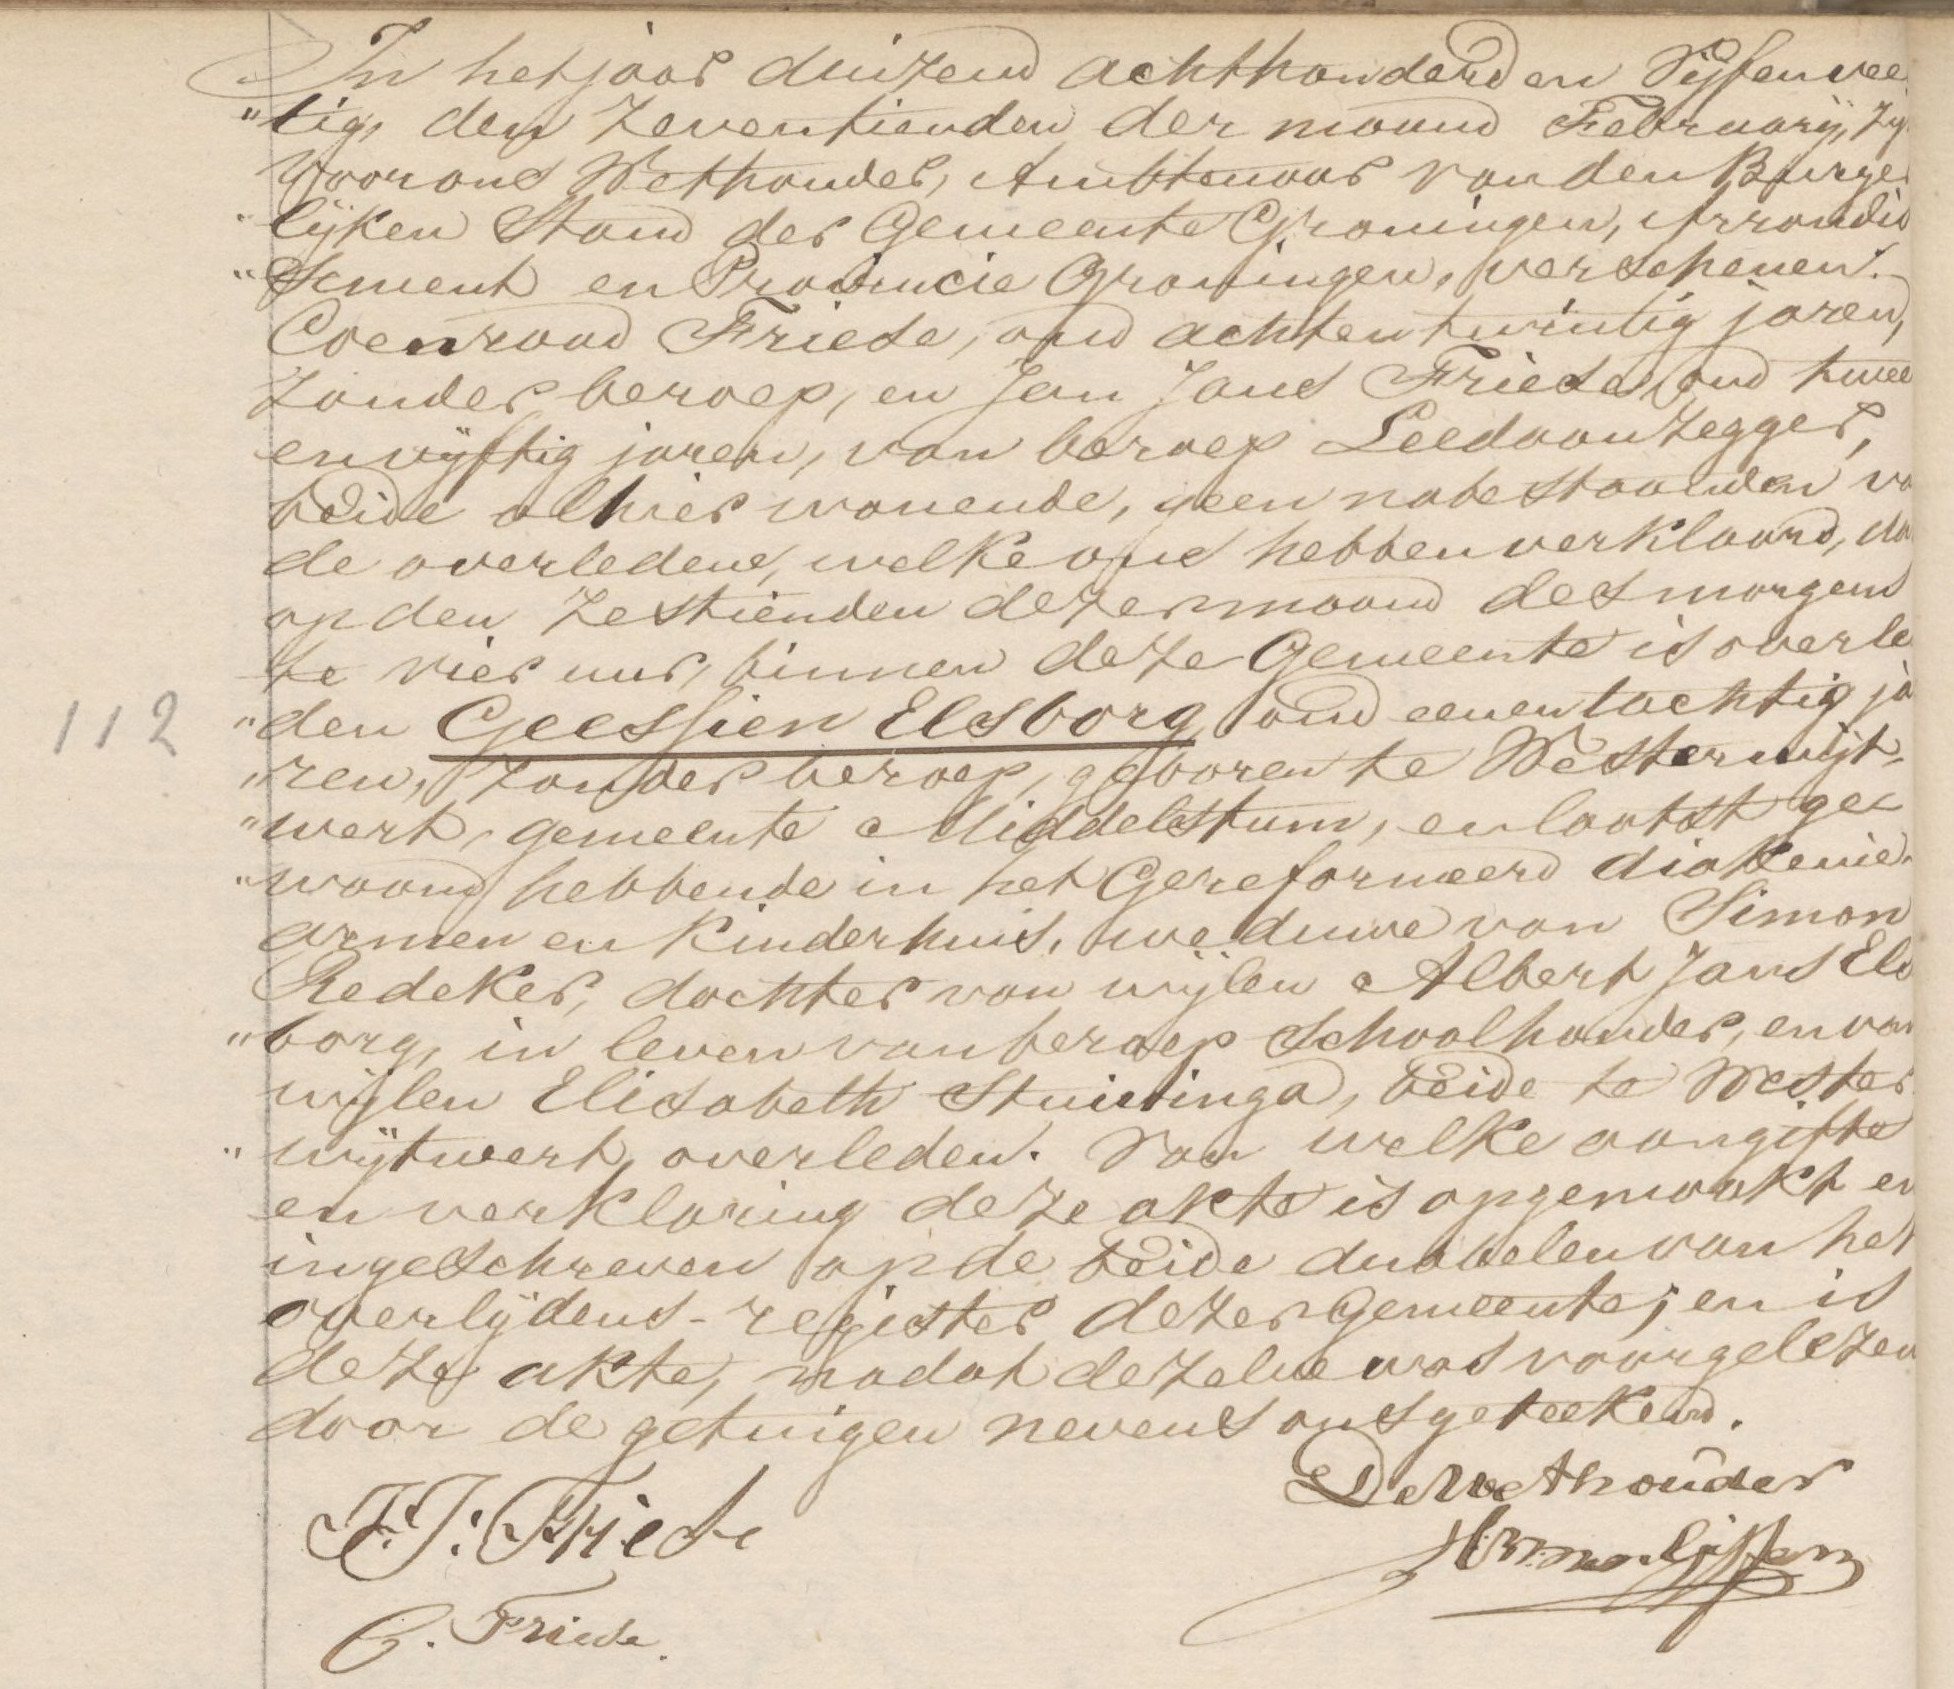 In het jaar duizend achthonderd en Vijfenvee
"tig, den Zeventienden der maand February, zy
voor ons Wethouder, Ambtenaar van den Burger
"lijken Stand der Gemeente Groningen, Arrondis
"sement en Provincie Groningen, verschenen:
Coenraad Friese, oud achtentwintig jaren,
zonder beroep, en Jan Jans Friese, oud twee
envijftig jaren, van beroep Leedaanzegger,
beide alhier wonende, geen nabestaanden va
de overledene, welke ons hebben verklaard, da
op den Zestienden dezer maand des morgens
te vier uur, binnen deze Gemeente is overle
112 "den Geessien Elsborg, oud eenentachtig ja
"ren, zonder beroep, geboren te Westerwijt,
"wert, gemeente Middelstum, en laatst ge
"woond hebbende in het Gereformeerd diakenie
armen en Kinderhuis, weduwe van Simon
Redeker, dochter van wijlen Albert Jans Els
"borg, in leven van beroep Schoolhouder, en van
wijlen Elisabeth Stuivinga, beide te Wester
"wijtwert, overleden. Van welke aangifte
en verklaring deze akte is opgemaakt en
ingeschreven op de beide dubbelen van het
overlijdens-register dezer Gemeente; en is
deze akte, nadat dezelve was voorgelezen
door de getuigen nevens ons geteekend.
De Wethouder
J.J. Friese
C. Friese.